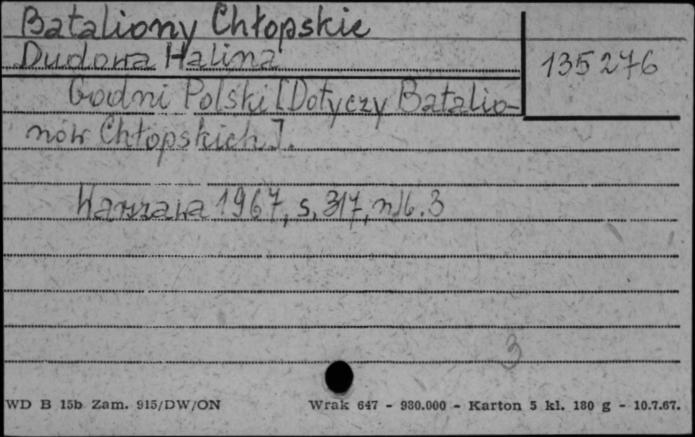 Bataliony Chłopskie
Dudowa Halina
135276
Godni Polski [Dotyczy Batalio-
nów Chłopskich].
Warszawa 1967, s. 317, nlb. 3
3
WD B 15b Zam. 915/DW/ON
Wrak 647 - 930.000 - Karton 5 kl. 180 g - 10.7.67.